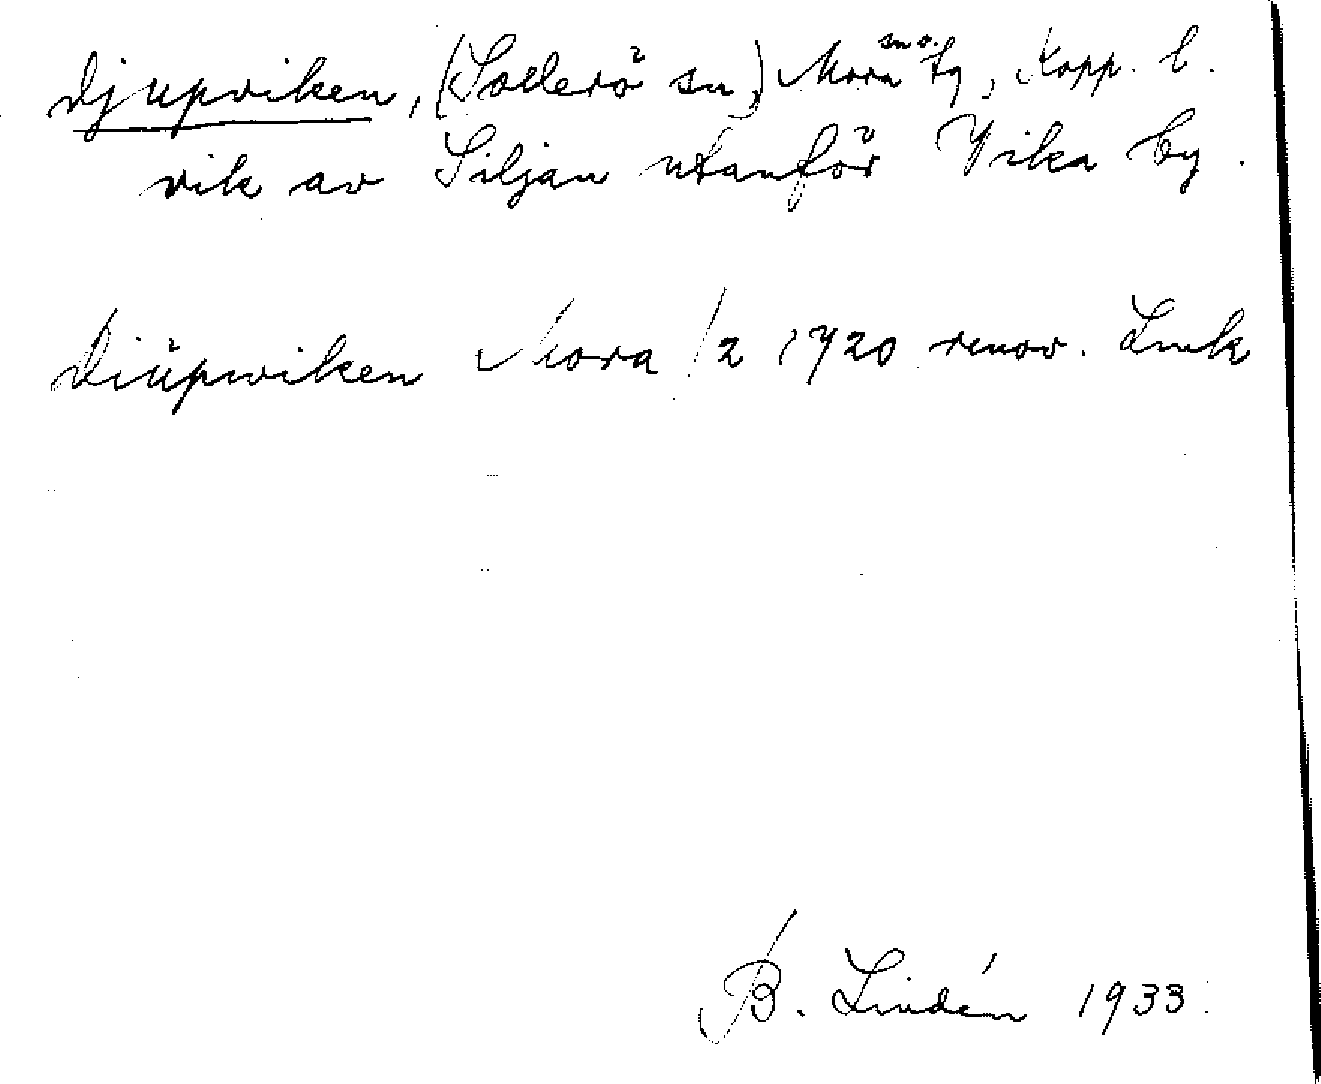 Djupviken, (Sollerö sn,) Mora sn o. tg, Kopp. l.
vik av Siljan utanför Vika by.
Diüpwiken Mora /2 1720 renov. Lmk
B. Lindén 1933.